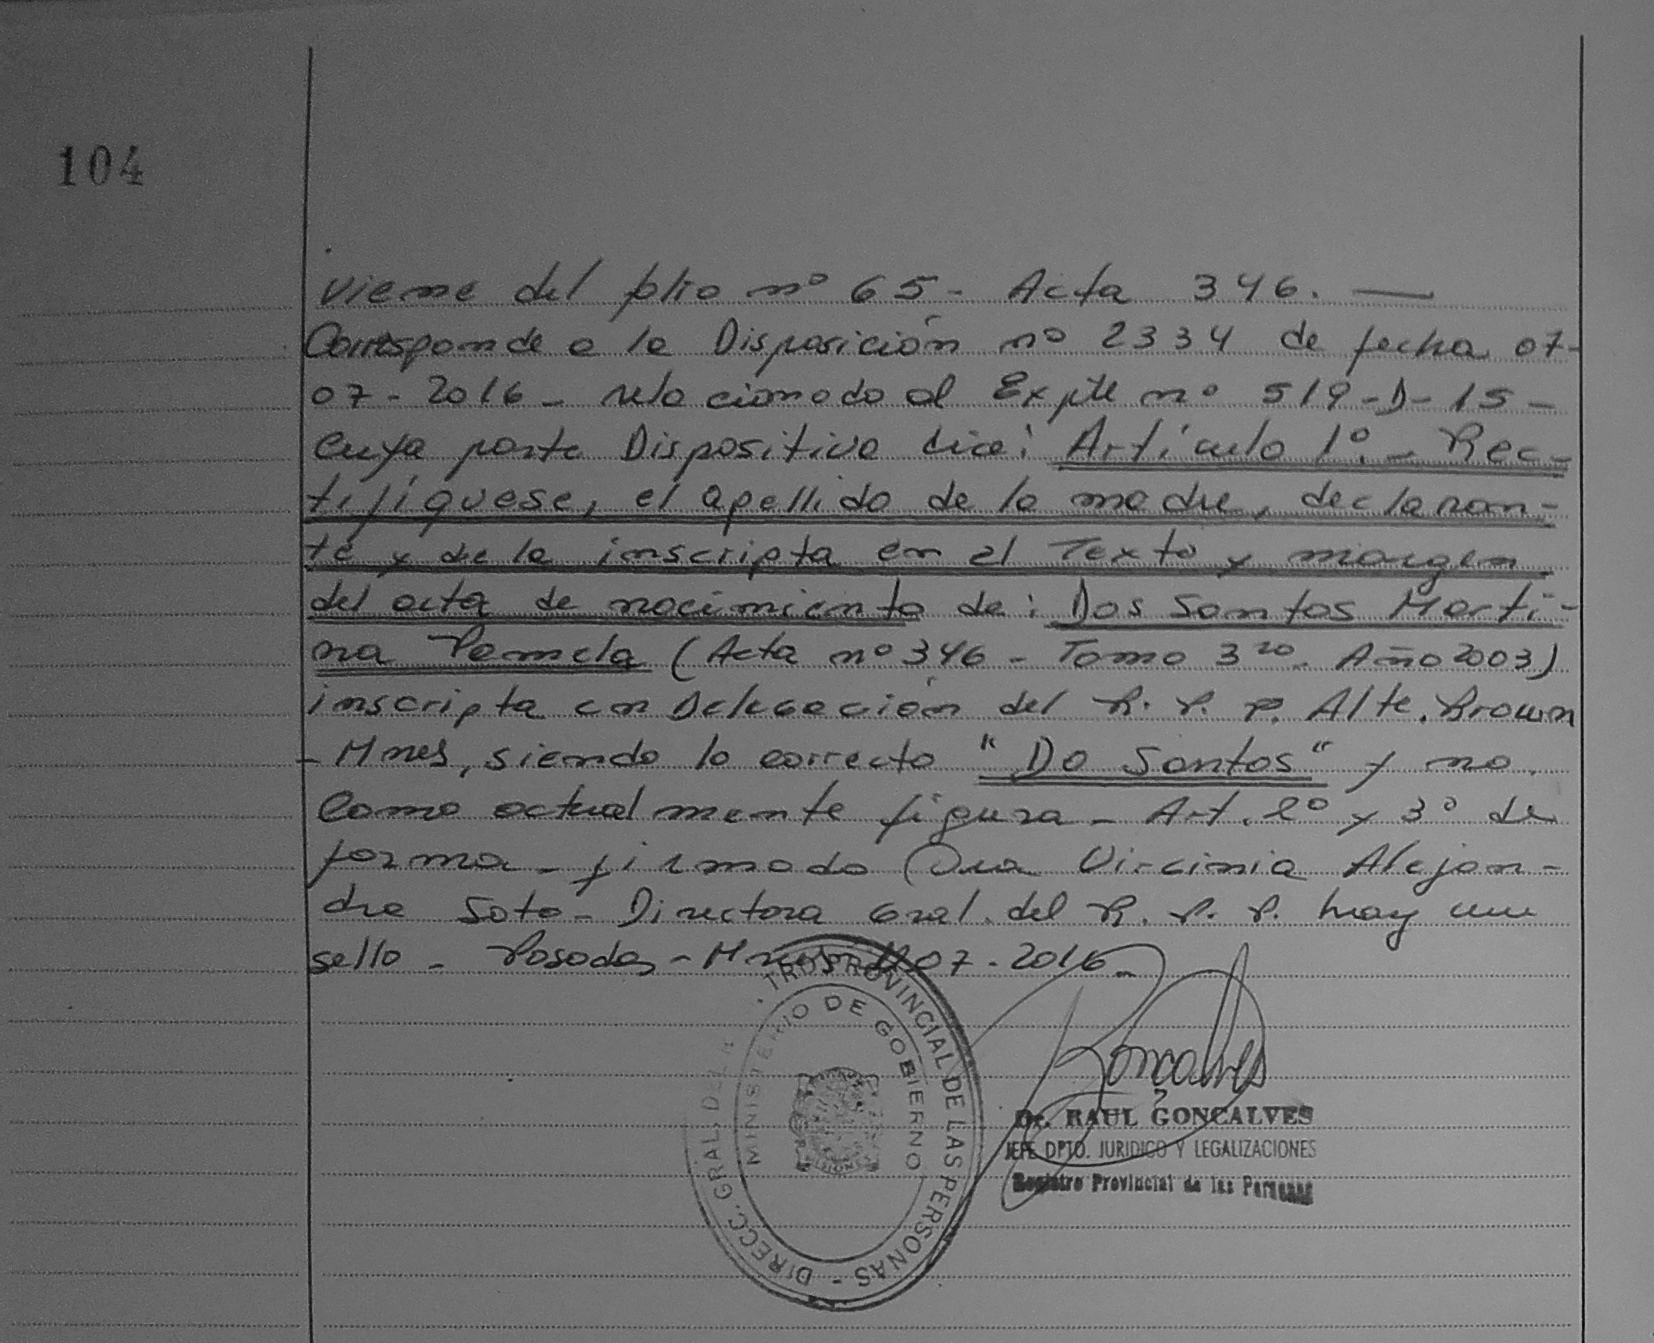 104
viene del folio nº 65 - Acta 346. —
Corresponde a la Disposición nº 2334 de fecha 07-
07-2016 - relacionado al Expte nº 519-D-15 -
cuya parte Dispositiva dice: Artículo 1º. - Rec-
tifíquese, el apellido de la madre, declaran-
te y de la inscripta en el Texto y margen
del acta de nacimiento de: Dos Santos Marti-
na Pamela (Acta nº 346 - Tomo 3ro. Año 2003)
inscripta en Delegación del R. P. P. Alte. Brown
- Mnes, siendo lo correcto "Do Santos" y no
como actualmente figura - Art. 2º y 3º de
forma - firmado Dra Virginia Alejan-
dra Soto - Directora Gral. del R. P. P. hay un
sello - Posadas - 07-2016 -
DIRECC. GRAL. DEL PROVINCIAL DE LAS PERSONAS -
MINISTERIO DE GOBIERNO
Goncalves
Dr. RAUL GONCALVES
JEFE DPTO. JURIDICO Y LEGALIZACIONES
Registro Provincial de las Personas